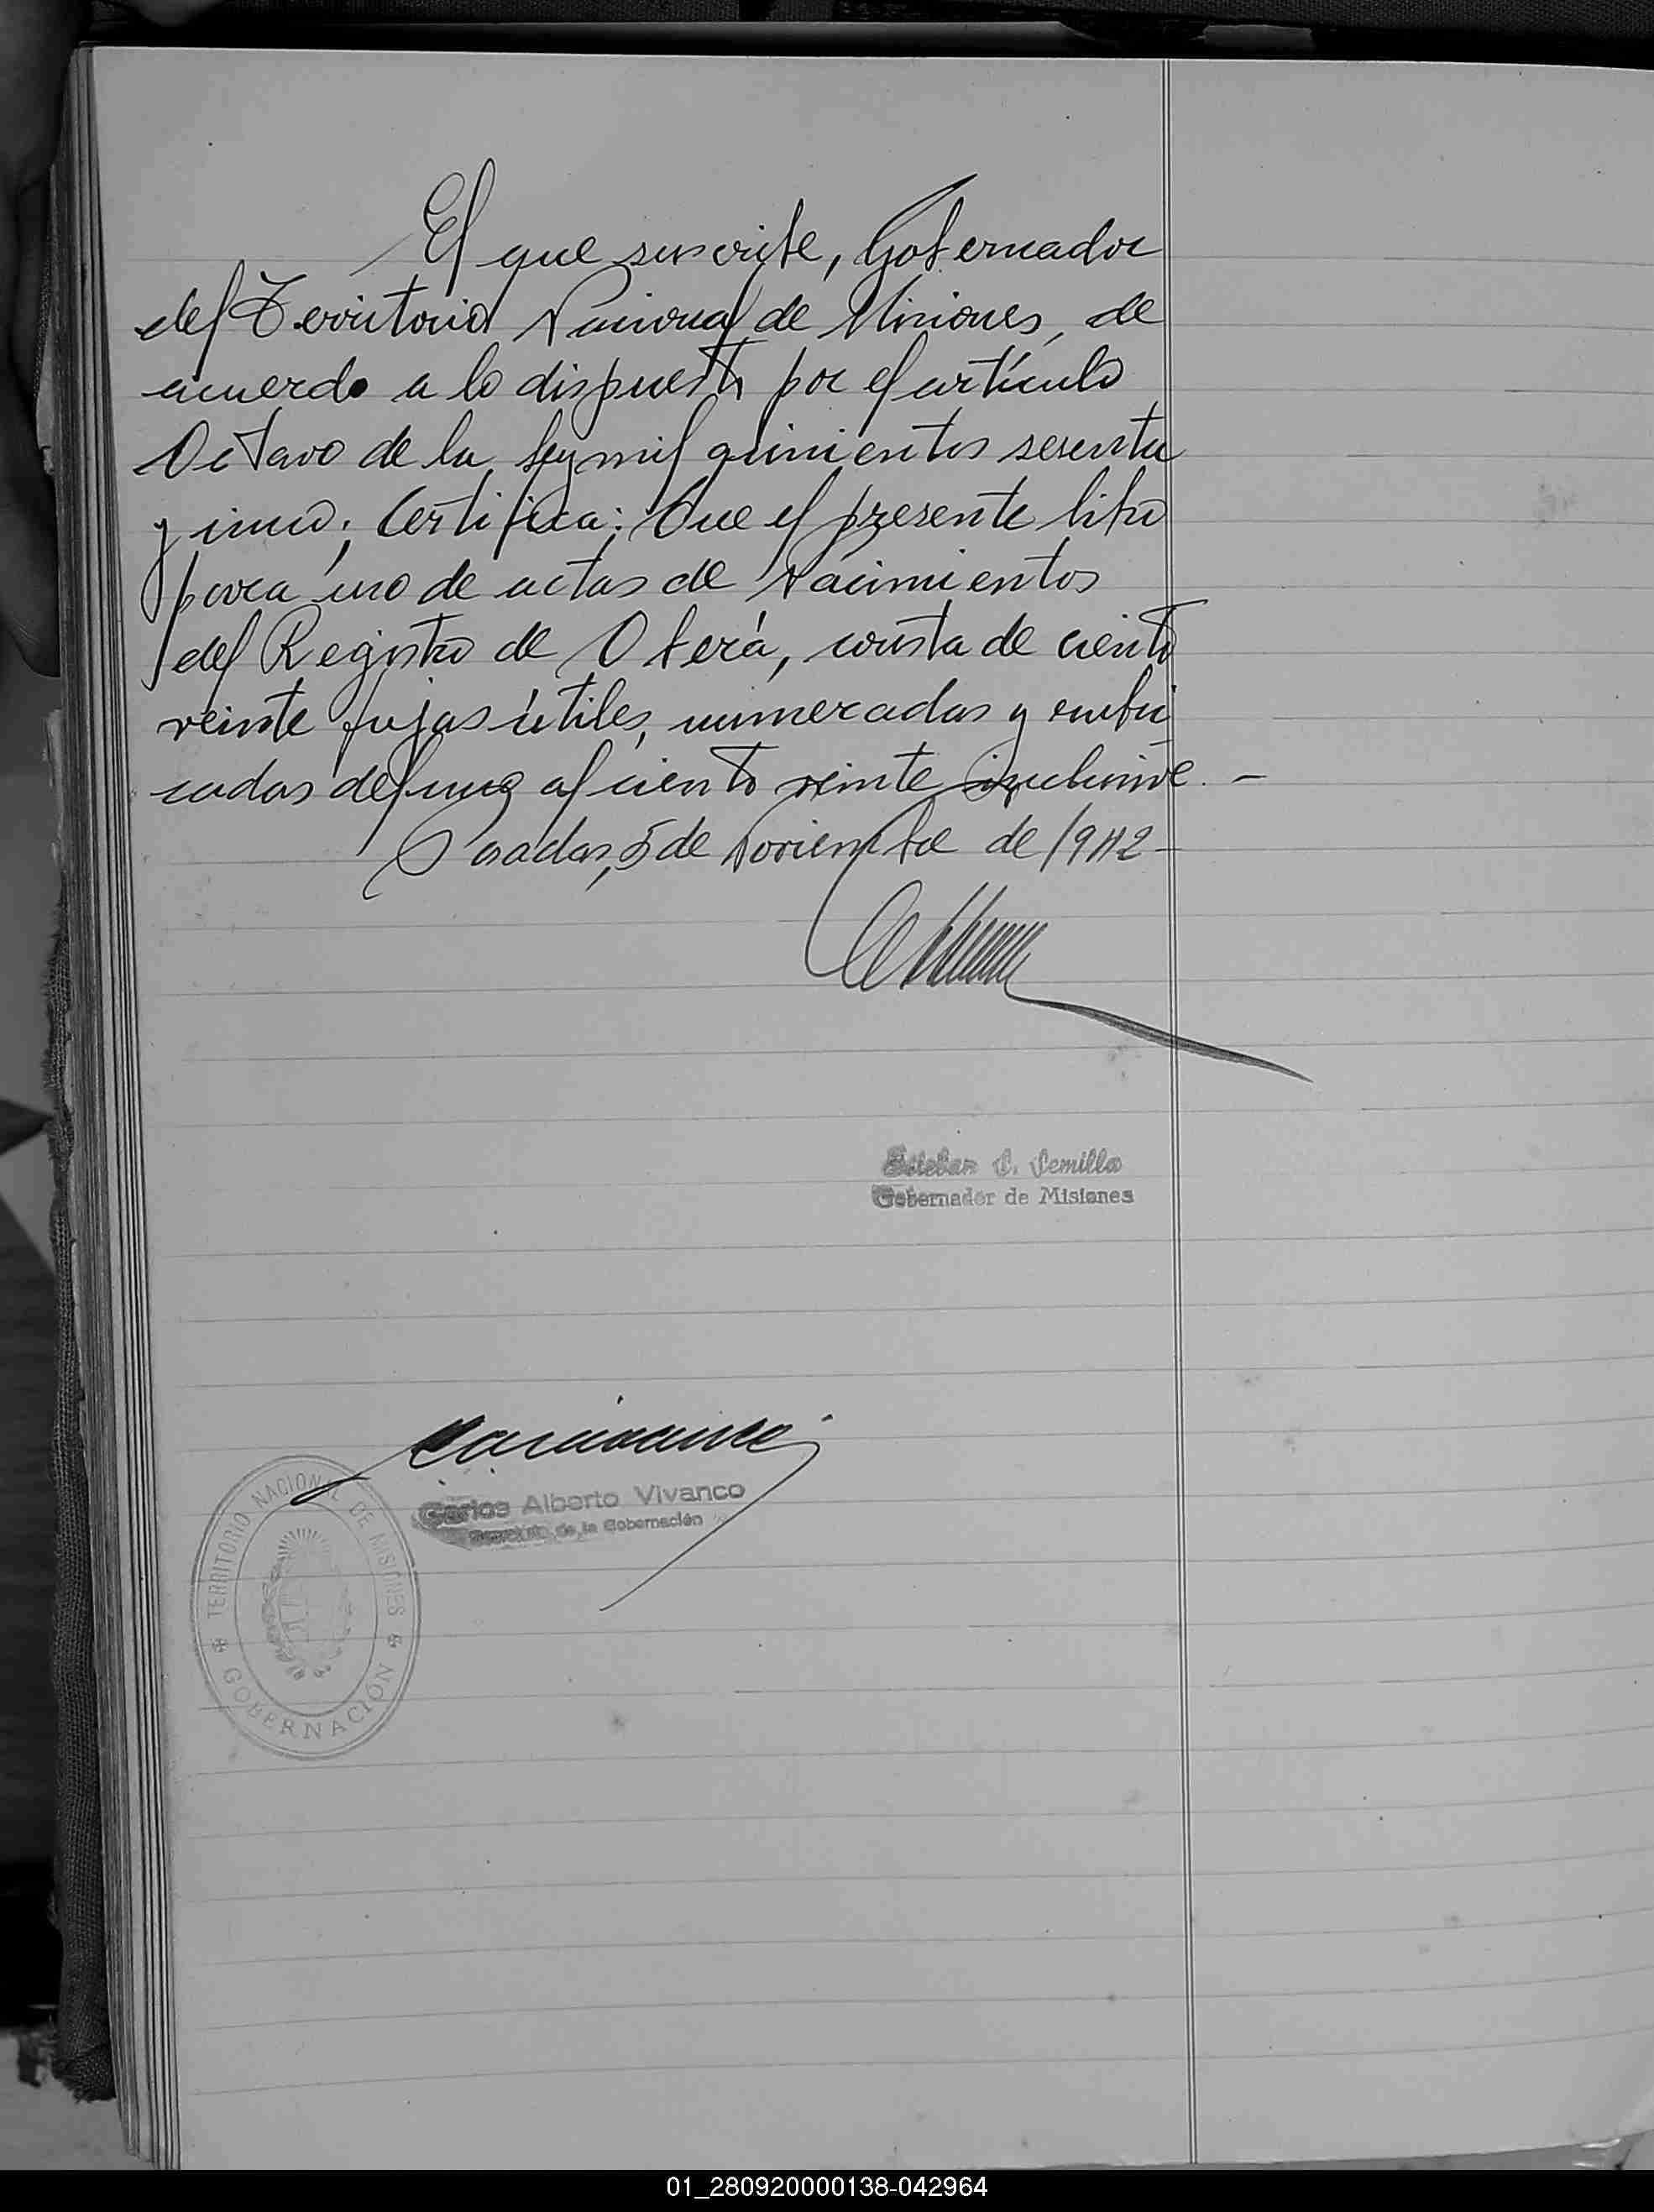 El que suscribe, Gobernador
del Territorio Nacional de Misiones, de
acuerdo a lo dispuesto por el artículo
Octavo de la Ley mil quinientos sesenta
y cinco; Certifica: Que el presente libro
para uso de actas de Nacimientos
del Registro de Oberá, consta de ciento
veinte fojas útiles, numeradas y rubri
cadas del uno al ciento veinte inclusive. -
Posadas, 5 de Noviembre de 1942 -
Esteban C. Semilla
Gobernador de Misiones
Carlos Alberto Vivanco
Secretario de la Gobernación
TERRITORIO NACIONAL DE MISIONES
GOBERNACIÓN
01_280920000138-042964